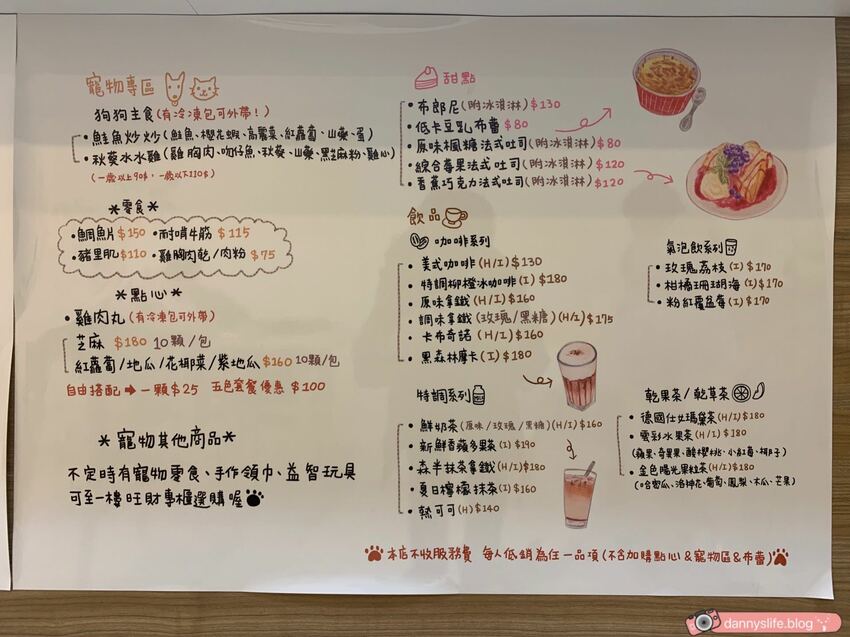 寵物專區
狗狗主食(有冷凍包可外帶!)
•鮭魚炒炒(鮭魚、櫻花蝦、高麗菜、紅蘿蔔、山藥、蛋)
•秋葵水水雞(雞胸肉、吻仔魚、秋葵、山藥、黑芝麻粉、雞心)
(一歲以上90$,一歲以下110$)
*零食*
•鯛魚片$150 •耐啃牛筋$115
•豬里肌$110 •雞胸肉乾/肉粉$75
*點心*
•雞肉丸(有冷凍包可外帶)
芝麻 $180 10顆/包
紅蘿蔔/地瓜/花椰菜/紫地瓜$160 10顆/包
自由搭配→一顆$25 五色套餐優惠 $100
*寵物其他商品*
不定時有寵物零食、手作領巾、益智玩具
可至一樓旺財專櫃選購喔
甜點
•布朗尼(附冰淇淋)$130
•低卡豆乳布蕾$80
•原味楓糖法式吐司(附冰淇淋)$80
•綜合莓果法式吐司(附冰淇淋)$120
•香蕉巧克力法式吐司(附冰淇淋)$120
飲品
咖啡系列
•美式咖啡(H/I)$130
•特調柳橙冰咖啡(I)$180
•原味拿鐵(H/I)$160
•調味拿鐵(玫瑰/黑糖)(H/I)$175
•卡布奇諾(H/I)$160
•黑森林摩卡(I)$180
氣泡飲系列
•玫瑰荔枝(I)$170
•柑橘珊瑚海(I)$170
•粉紅覆盆莓(I)$170
特調系列
•鮮奶茶(原味/玫瑰/黑糖)(H/I)$160
•新鮮香蘋多果茶(I)$190
•森半抹茶拿鐵(H/I)$180
•夏日檸檬抹茶(I)$160
•熱可可(H)$140
乾果茶/乾草茶
•德國仕女瑪黛茶(H/I)$180
•雲彩水果茶(H/I)$180
(蘋果、奇異果、酸櫻桃、小紅莓、椰子)
•金色陽光果粒茶(H/I)$180
(哈密瓜、洛神花、葡萄、鳳梨、木瓜、芒果)
本店不收服務費 每人低銷為任一品項(不含加購點心&寵物區&布蕾)
dannyslife.blog